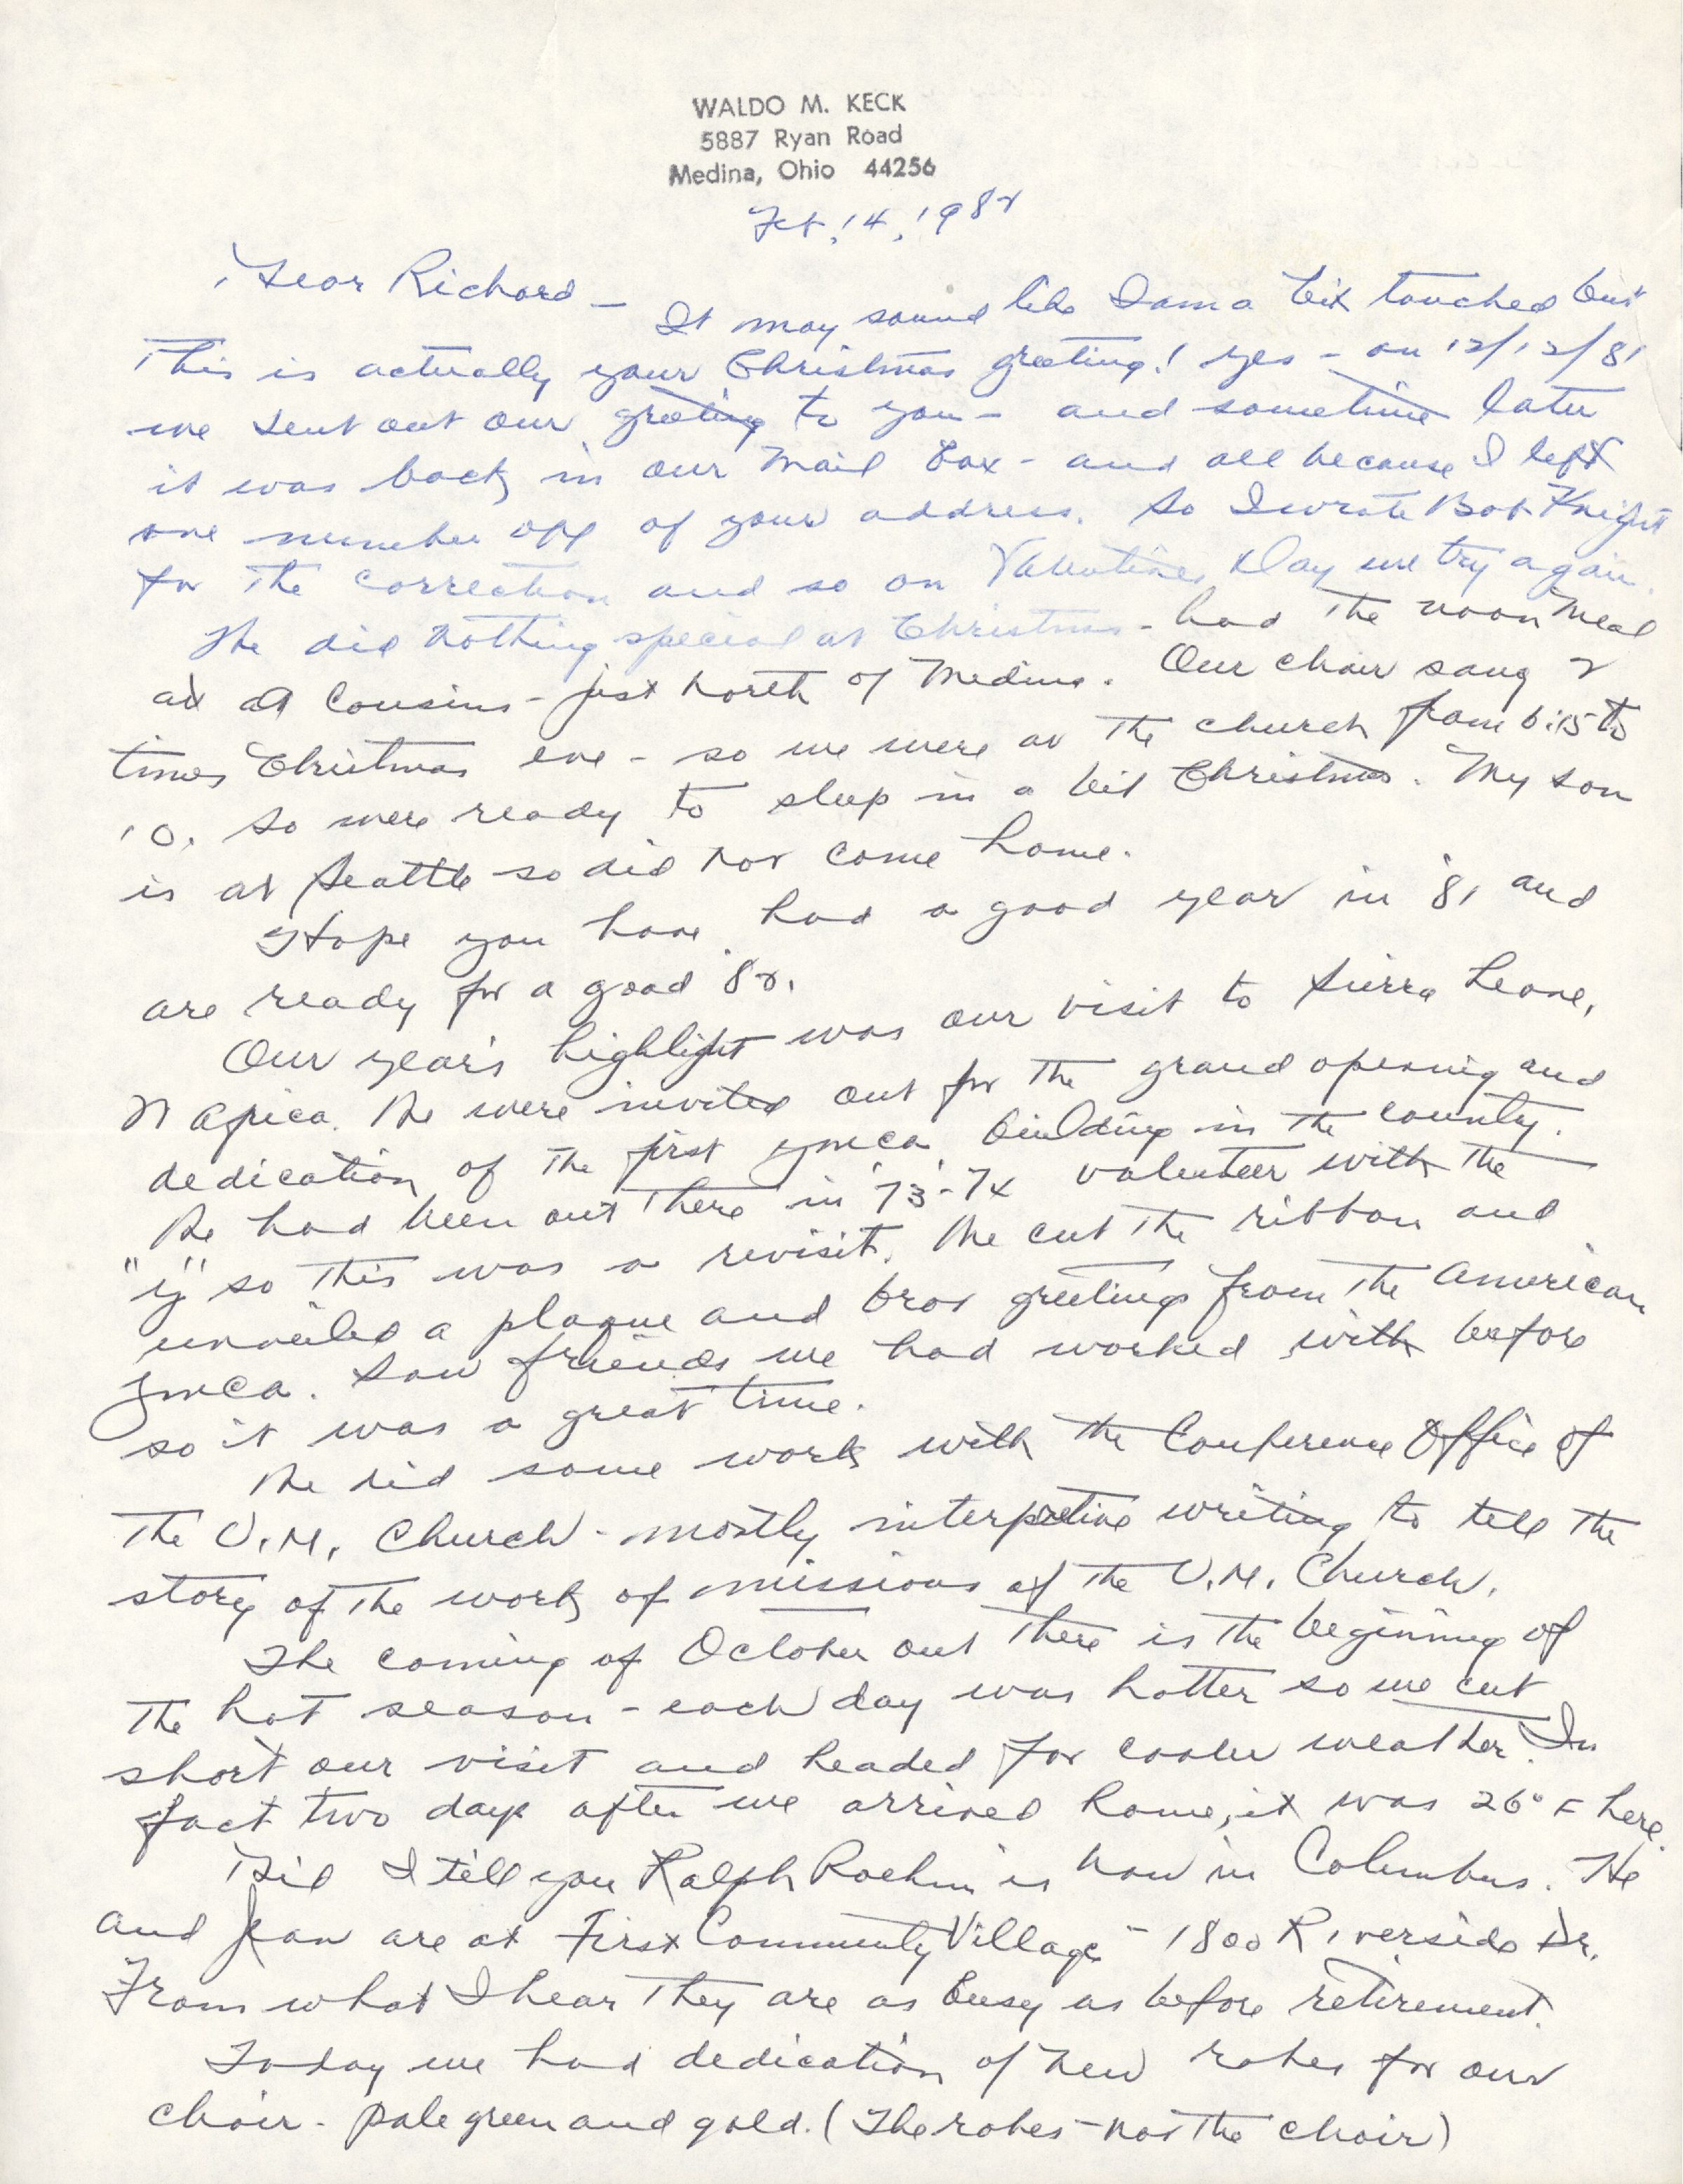 WALDO M. KECK
5887 Ryan Road
Medina, Ohio 44256
Feb. 14, 1982
Dear Richard —
It may sound like I am a bit touched but
This is actually your Christmas greeting! Yes - on 12/12/81
we sent out our greeting to you - and sometime later
it was back in our mail box - and all because I left
one number off of your address. So I wrote Bob Knight
for the correction and so on Valentines Day we try again.
We did nothing special at Christmas - had the noon meal
at a Cousins - just north of Medina. Our choir sang 2
times Christmas eve - so we were at the church from 6:15 to
10. So were ready to sleep in a bit Christmas. My son
is at Seattle so did not come home.
Hope you have had a good year in '81 and
are ready for a good '82.
Our year's highlight was our visit to Sierra Leone,
W Africa. We were invited out for the grand opening and
dedication of the first YMCA building in the county.
We had been out there in '73-'74 volunteer with the
"Y" so this was a revisit. We cut the ribbon and
unveiled a plaque and brot greetings from the American
YMCA. Saw friends we had worked with before
so it was a great time.
We did some work with the Conference Office of
the U.M. Church - mostly interpretive writing to tell the
story of the work of missions of the U.M. Church.
The coming of October out there is the beginning of
the hot season - each day was hotter so we cut
short our visit and headed for cooler weather. In
fact two days after we arrived home, it was 26° F here.
Did I tell you Ralph Roehm is now in Columbus. He
and Jean are at First Community Village - 1800 Riverside Dr.
From what I hear they are as busy as before retirement.
Today we had dedication of new robes for our
choir - pale green and gold. (The robes - not the choir)